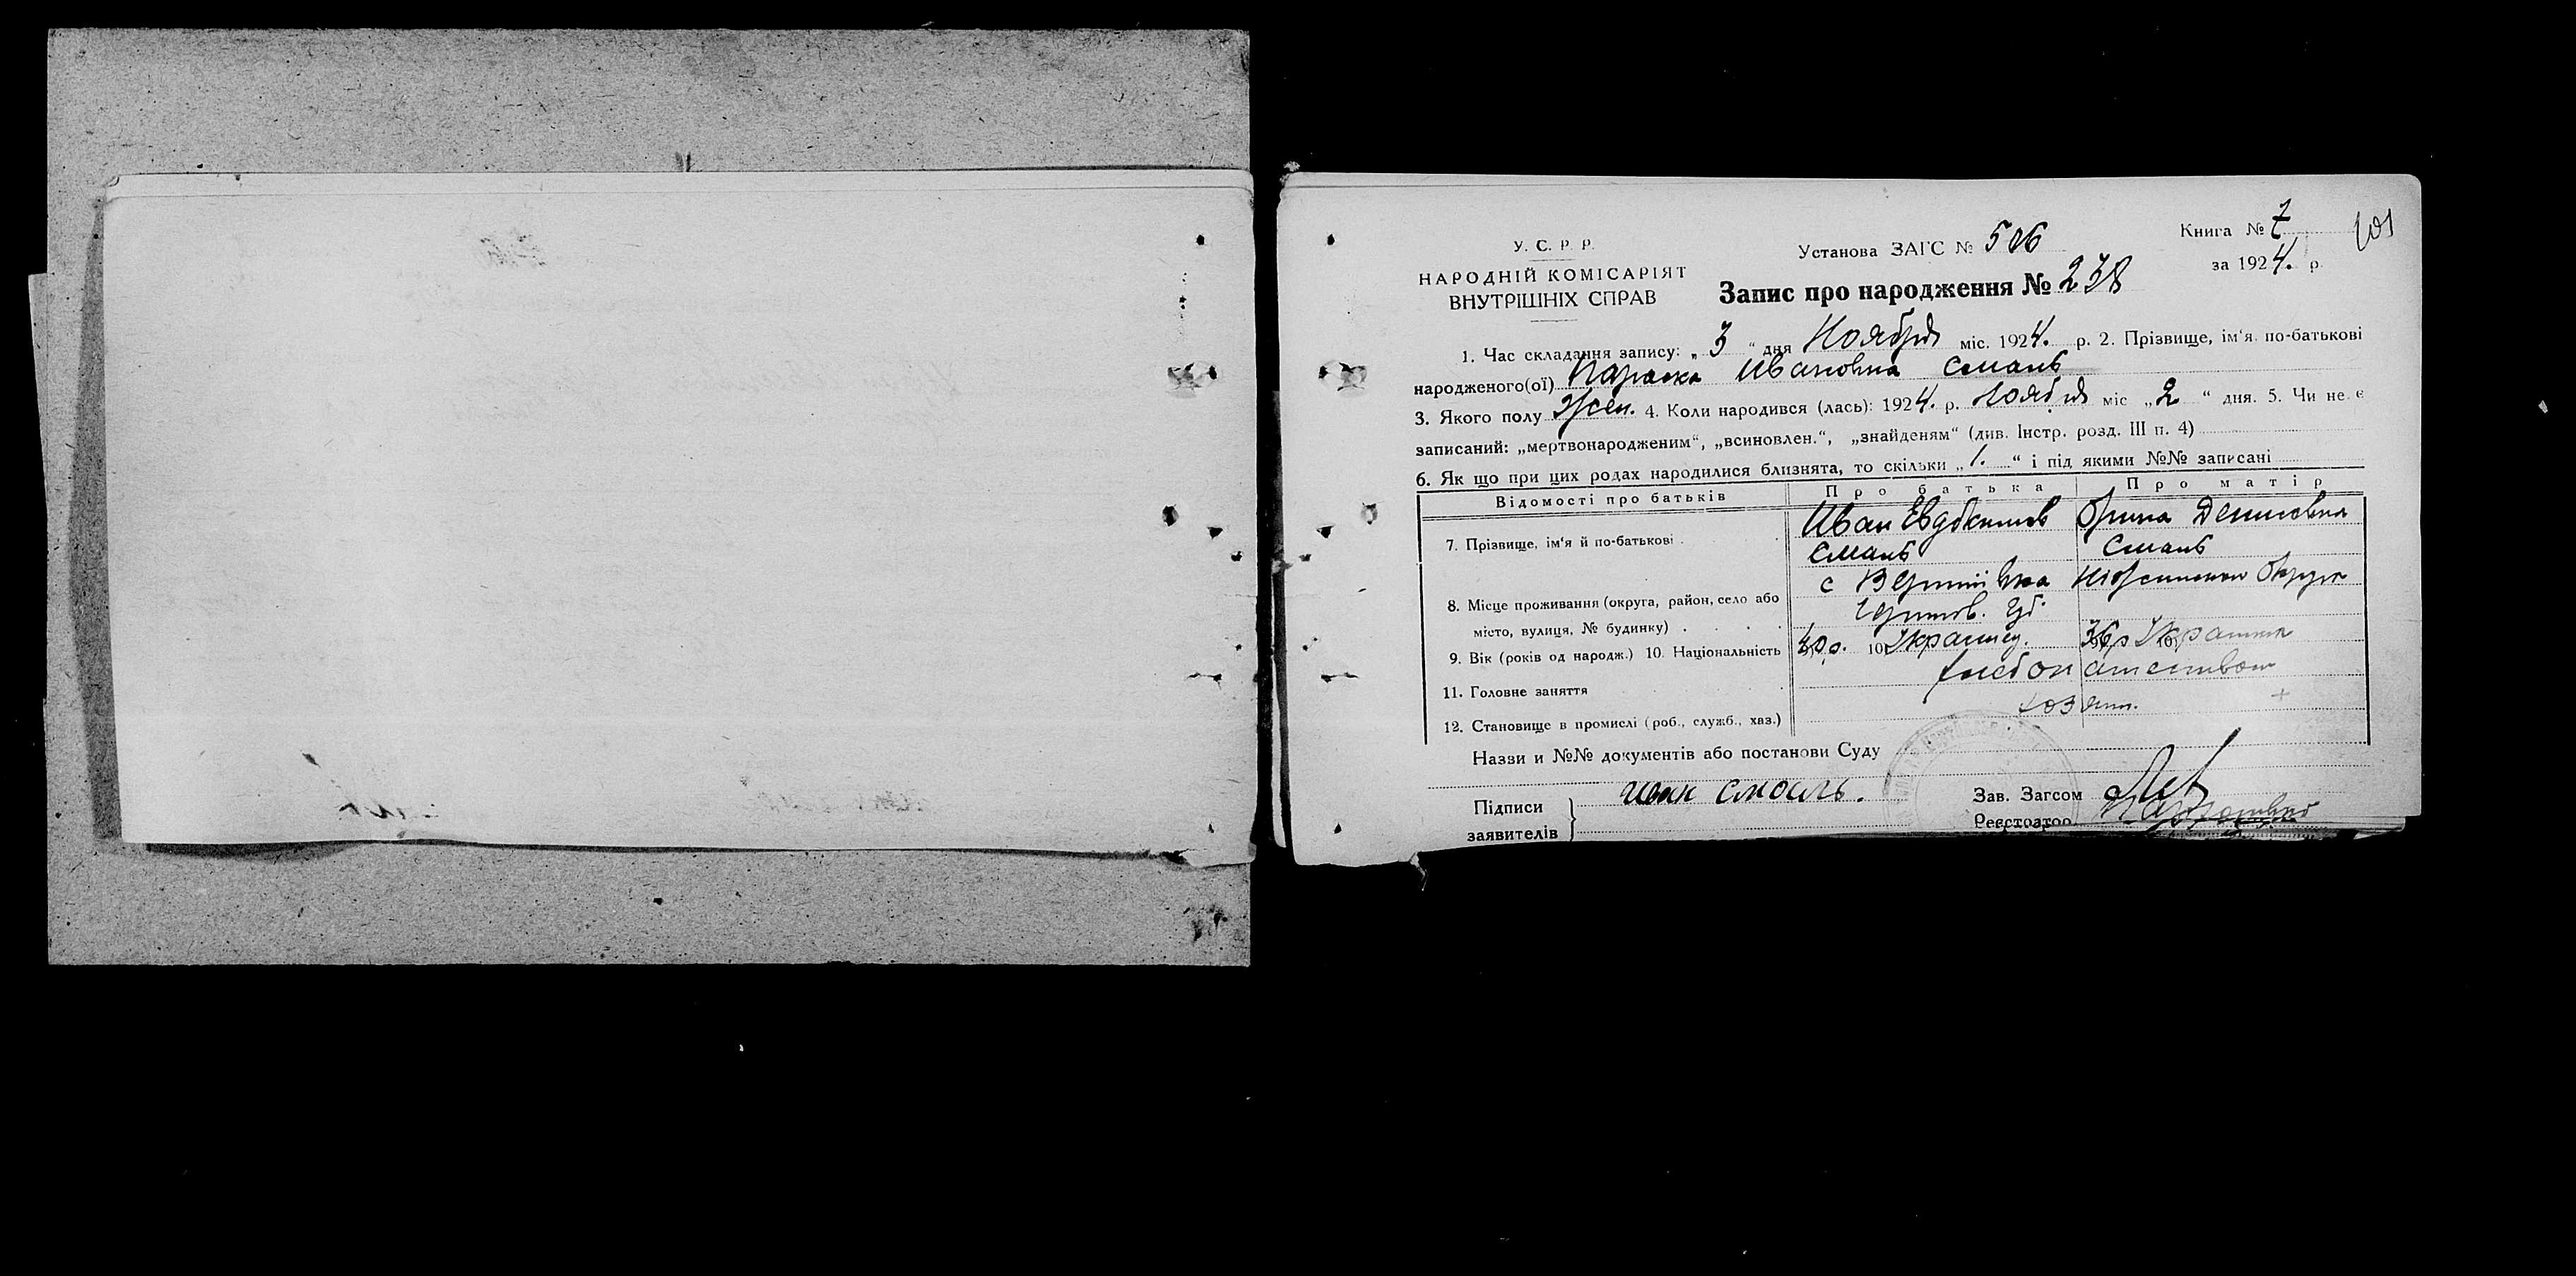 У. С. Р. Р.
НАРОДНІЙ КОМІСАРІЯТ
ВНУТРІШНІХ СПРАВ
Установа ЗАГС № 506
Запис про народження № 238
Книга № 7
за 1924. р.
101
1. Час складання запису: „3“ дня Ноября міс. 1924. р. 2. Прізвище, ім‘я, по-батькові
народженого(ої) Параска Ивановна Смаль
3. Якого полу Жен. 4. Коли народився (лась): 1924. р. Ноября міс „2“ дня. 5. Чи не є
записаний: „мертвонародженим“, „всиновлен.“, „знайденям“ (див. Інстр. розд. III п. 4)
6. Як що при цих родах народилися близнята, то скільки „1.“ і під якими №№ записані
Відомості про батьків Про батька Про матір
7. Прізвище, ім‘я й по-батькові Иван Евдокимов Орина Денисовна
Смаль Смаль
8. Місце проживання (округа, район, село або с
місто, вулиця, № будинку) Губ.
9. Вік (років од народж.) 10. Національність 40 р. 10 Украинец. 36 р 10 Украинка
11. Головне заняття
12. Становище в промислі (роб., служб., хаз.) хозяин.
Назви и №№ документів або постанови Суду
Підписи
заявителів
Иван Смаль.
Зав. Загсом
Реєстратор